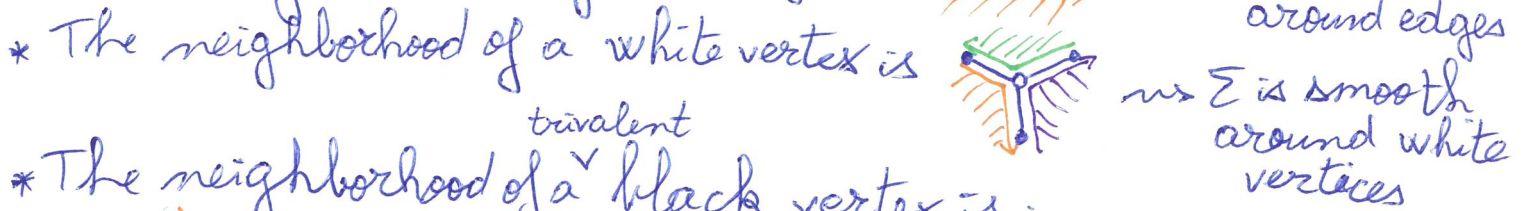 around edges
* The neighborhood of a white vertex is ⇝ Σ is smooth
around white
vertices
trivalent
* The neighborhood of a ∨ black vertex is :